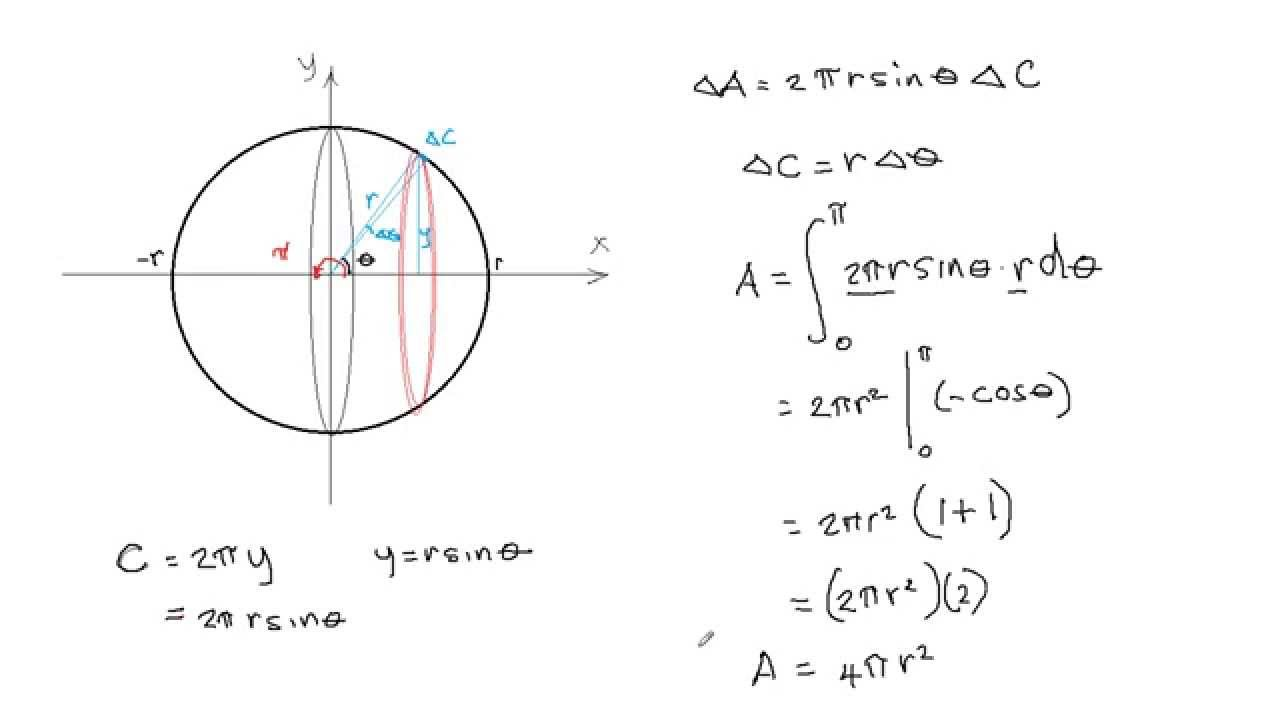 y
ΔC
r
Δθ
y
π
θ
x
-r
r
C = 2πy
y=rsinθ
= 2πrsinθ
ΔA = 2πrsinθ ΔC
ΔC = rΔθ
A = ∫₀^π 2πrsinθ·rdθ
= 2πr² |₀^π (-cosθ)
= 2πr² (1+1)
= (2πr²)(2)
A = 4πr²